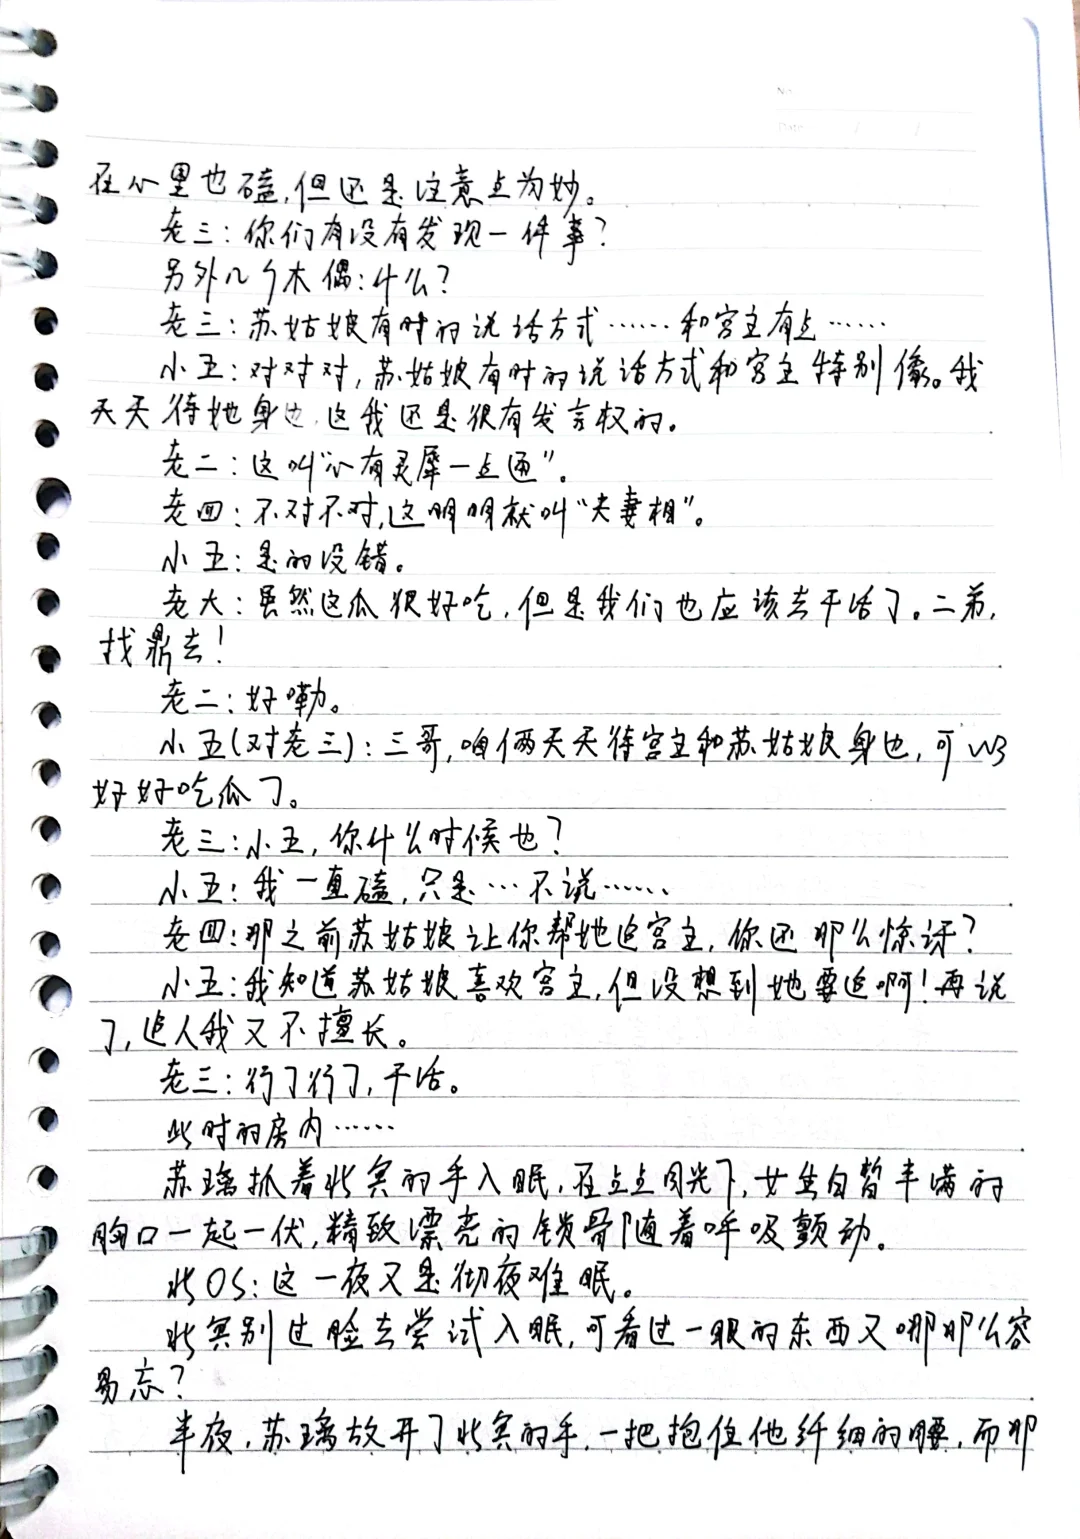 在心里也磕,但还是注意点为妙。
老三:你们有没有发现一件事?
另外几个木偶:什么?
老三:苏姑娘有时的说话方式……和宫主有点……
小五:对对对,苏姑娘有时的说话方式和宫主特别像。我
天天待她身边,这我还是很有发言权的。
老二:这叫“心有灵犀一点通”。
老四:不对不对,这明明就叫“夫妻相”。
小五:是的没错。
老大:虽然这瓜很好吃,但是我们也应该去干活了。二弟,
找鼎去!
老二:好嘞。
小五(对老三):三哥,咱俩天天待宫主和苏姑娘身边,可以
好好吃瓜了。
老三:小五,你什么时候也?
小五:我一直磕,只是…不说……
老四:那之前苏姑娘让你帮她追宫主,你还那么惊讶?
小五:我知道苏姑娘喜欢宫主,但没想到她要追啊!再说
了,追人我又不擅长。
老三:行了行了,干活。
此时的房内……
苏璃抓着北冥的手入眠,在点点月光下,女生白皙丰满的
胸口一起一伏,精致漂亮的锁骨随着呼吸颤动。
北OS:这一夜又是彻夜难眠。
北冥别过脸去尝试入眠,可看过一眼的东西又哪那么容
易忘?
半夜,苏璃放开了北冥的手,一把抱住他纤细的腰,而那